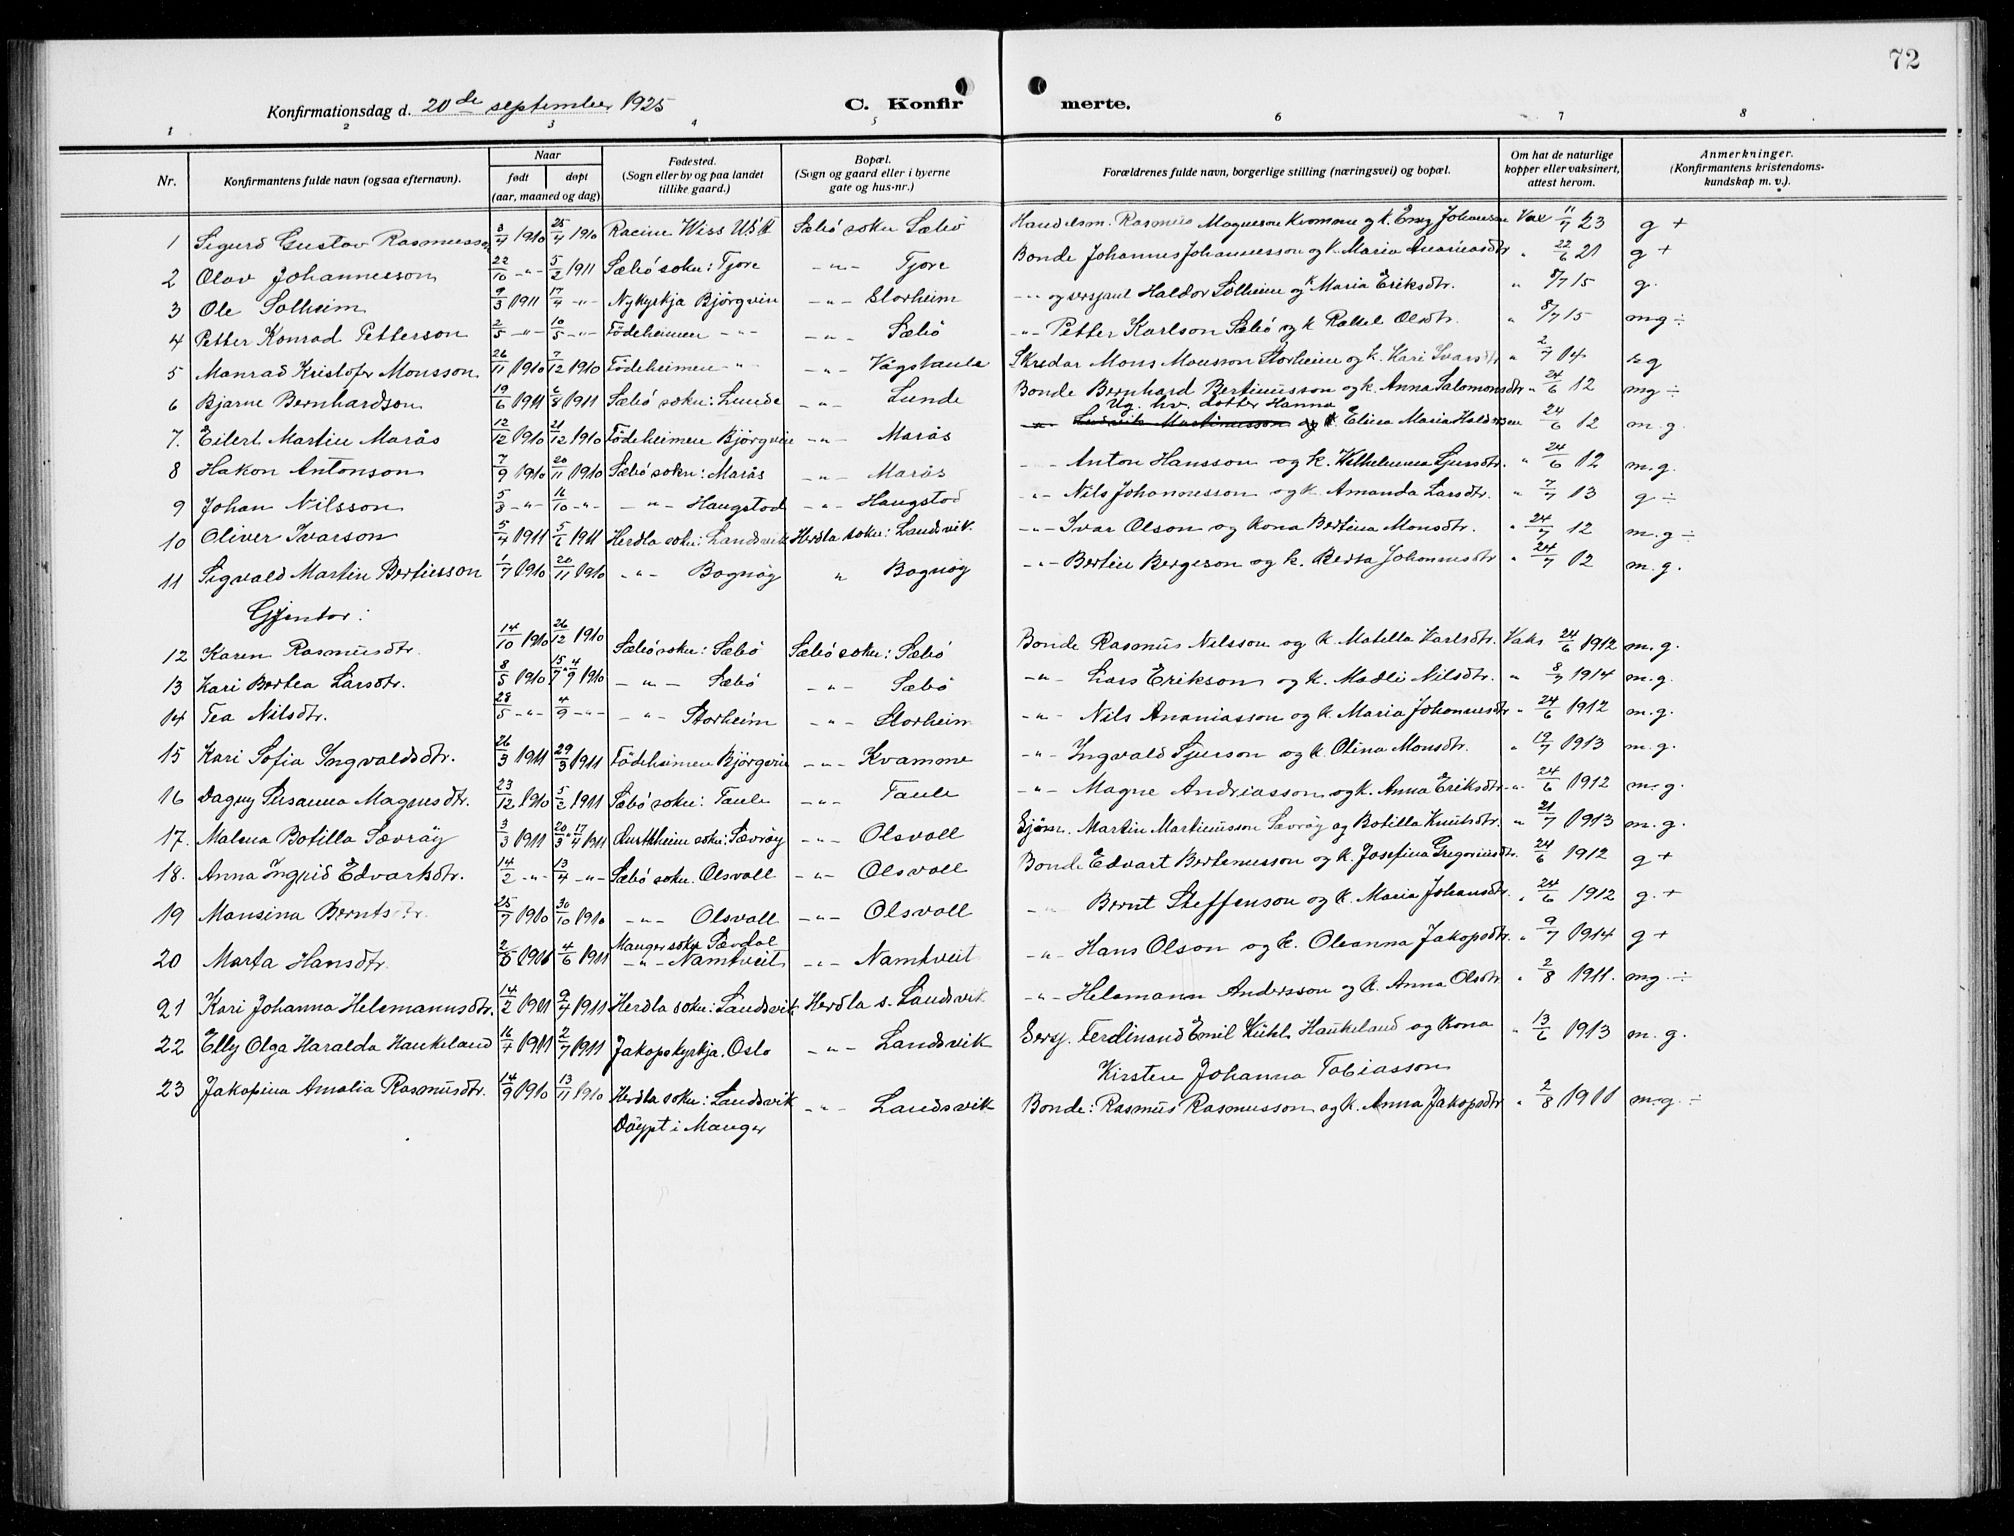 72
Konfirmationsdag d. 20de september 1925
C. Konfir merte.
1 2 3 4 5 6 7 8
Nr.
Konfirmantens fulde navn (ogsaa efternavn).
Naar
født døpt
(aar, maaned og dag)
Fødested.
(Sogn eller by og paa landet
tillike gaard.)
Bopæl.
(Sogn og gaard eller i byerne
gate og hus-nr.)
Forældrenes fulde navn, borgerlige stilling (næringsvei) og bopæl.
Om hat de naturlige
kopper eller vaksinert,
attest herom.
Anmerkninger.
(Konfirmantens kristendoms-
kundskap m. v.).
1 Sigurd Gustav Rasmusson 3/4 1910 25/4 1910 Racine Wiss USA Sæbö sokn Sæbö Handelsm. Rasmus Magneson Kvamme og k. Johanson 11/7 23 g +
2 Olav Johannesson 22/10 -"- 5/2 1911 Sæbö sokn: Tjore -"- Tjore Bonde Johannes Johannesson og k. Maria Ananiasdtr. " 22/6 21 g +
3 Ole Solheim 9/3 1911 17/4 -"- Nykyrkja Björgvin -"- Storheim -"- og sersjant Haldor Solheim og k. Maria Eriksdtr. " 8/7 15 g.
4 Petter Konrad Petterson 2/5 -"- 10/5 -"- Födeheimen -"- -"- Sæbö -"- Petter Karlson Sæbö og k Rakkel Olsdtr. " 8/7 15 mg ÷
5 Monrad Kristofer Monsson 26/11 1910 7/12 1910 Födeheimen -"- -"- Vågstaule Skredar Mons Monsson Storheim og k. Kari Ivarsdtr. " 2/7 14 g
6 Bjarne Bernhardson 19/6 1911 6/8 1911 Sæbö sokn: Lunde -"- Lunde Bonde Bernhard Bertinusson og k. Anna Salomonsdtr " 24/6 12 mg ÷
Ug. hv. dotter Hanna
7. Eilert Martin Marås 12/12 1910 21/12 1910 Födeheimen Björgvin -"- Marås -"- Ludvik Martinusson og k Elina Maria Haldorsen 24/6 12 m.g.
8 Hakon Antonson 7/9 1910 20/11 1910 Sæbö sokn: Marås -"- Marås -"- Anton Hansson og k. Vilhelmina Sjursdtr. " 24/6 12 m.g.
9 Johan Nilsson 5/8 -"- 16/10 -"- -"- Haugstad -"- Haugstod -"- Nils Johannesson og k. Amanda Larsdtr. " 7/7 13 g ÷
10 Oliver Ivarson 5/4 1911 5/6 1911 Herdla sokn: Landsvik Herdla sokn: Landsvik. -"- Ivar Olson og kona Bertina Monsdtr. " 24/7 12 m.g ÷
11 Sigvald Martin Bertinsson 1/7 1910 20/11 1910 -"- Bognöy " Bognöy -"- Bertin Bergeson og k. Berta Johannesdtr " 24/7 12 m.g.
Gjentor:
12 Karen Rasmusdtr. 14/10 1910 26/12 1910 Sæbö sokn: Sæbö Sæbö sokn: Sæbö Bonde Rasmus Nilsson og k Matella Karlsdtr. Vaks 24/6 1912 m.g.
13 Kari Bertea Larsdtr. 8/5 1910 15/7 " 4/9 1910 -"- Sæbö -"- Sæbö -"- Lars Erikson og k. Madli Nilsdtr. " 8/7 1914 m.g.
14 Tea Nilsdtr. 28/5 -"- 4/9 -"- -"- Storheim -"- Storheim -"- Nils Ananiasson og k. Maria Johannesdtr " 24/6 1912 m.g.
15 Kari Sofia Ingvaldsdtr. 26/3 1911 29/3 1911 Födeheimen Björgvin -"- Kvamme -"- Ingvald Sjurson og k. Olina Monsdtr. " 19/7 1913 m.g.
16 Dagny Susanna Magnusdtr. 23/12 1910 5/2 1911 Sæbö sokn: Taule -"- Taule -"- Magne Andriasson og k. Anna Eriksdtr. " 24/6 1912 m.g.
17. Malena Botilla Sævröy 3/3 1911 20/3 " 17/4 1911 sokn: Sævröy -"- Olsvoll Sjöm. Martin Martinusson Sævröy og Botilla Knutsdtr. " 21/7 1913 m.g.
18. Anna Ingrid Edvartsdtr. 14/2 -"- 13/4 -"- Sæbö sokn. Olsvoll -"- Olsvoll Bonde Edvart Bertinusson og k. Josefina Gregoriusdtr. 24/6 1912 g +
19 Monsina Berntsdtr. 25/7 1910 30/10 1910 -"- Olsvoll -"- Olsvoll -"- Bernt Steffenson og k. Maria Johansdtr. " 24/6 1912 g. +
20 Marta Hansdtr. 4/6 1911 Manger sokn Sævdal
-"- Namtveit -"- Namtveit -"- Hans Olson og k. Oleanna Jakopsdtr. " 9/7 1914 g +
21 Kari Johanna Helemannsdtr. 14/2 1911 9/4 1911 Herdla sokn: Landsvik. Herdla s. Landsvik -"- Helemann Andersson og k. Anna Olsdtr " 2/8 1911. mg. ÷
22 Elly Olga Haralda Haukeland 16/4 1911 2/7 1911 Jakopskyrkja. Oslo -"- Landsvik Sersj. Ferdinand Emil Kühl Haukeland og kona " 13/6 1913 m.g.
Kirsten Johanna Tobiasson
23 Jakopina Amalia Rasmusdtr. 14/9 1910 13/11 1910 Herdla sokn: Landsvik -"- Landsvik Bonde: Rasmus Rasmusson og k. Anna Jakopsdtr " 2/8 1911 m.g. ÷
Döypt i Manger